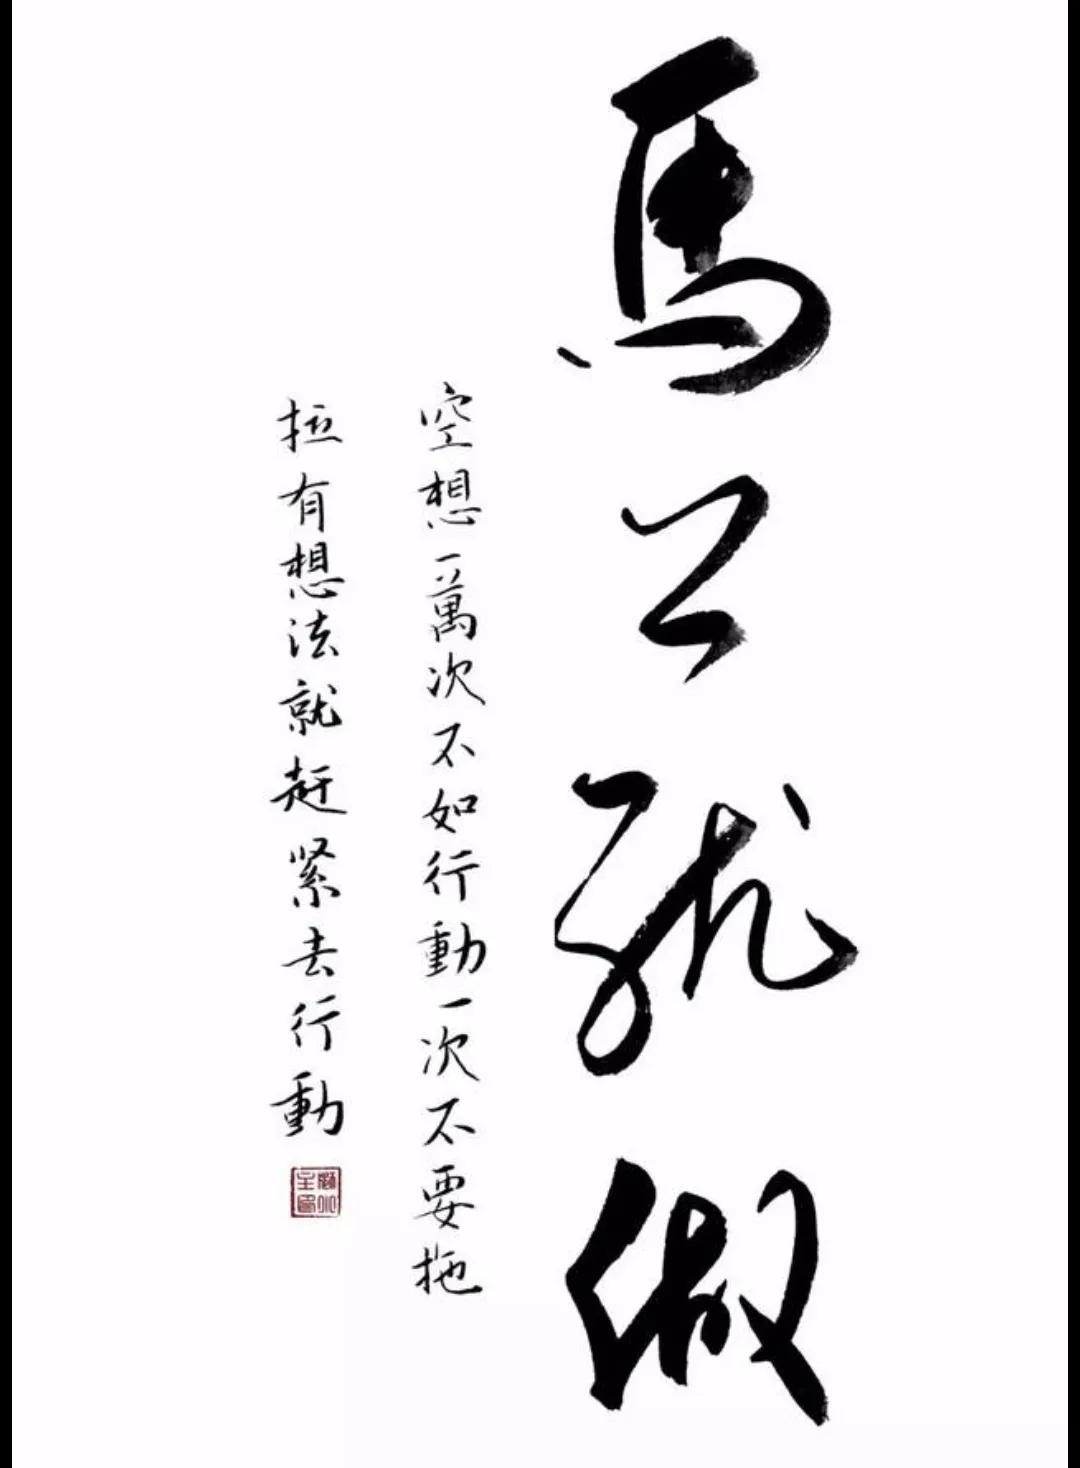 馬上就做
空想一萬次不如行動一次不要拖
拉有想法就趕紧去行動